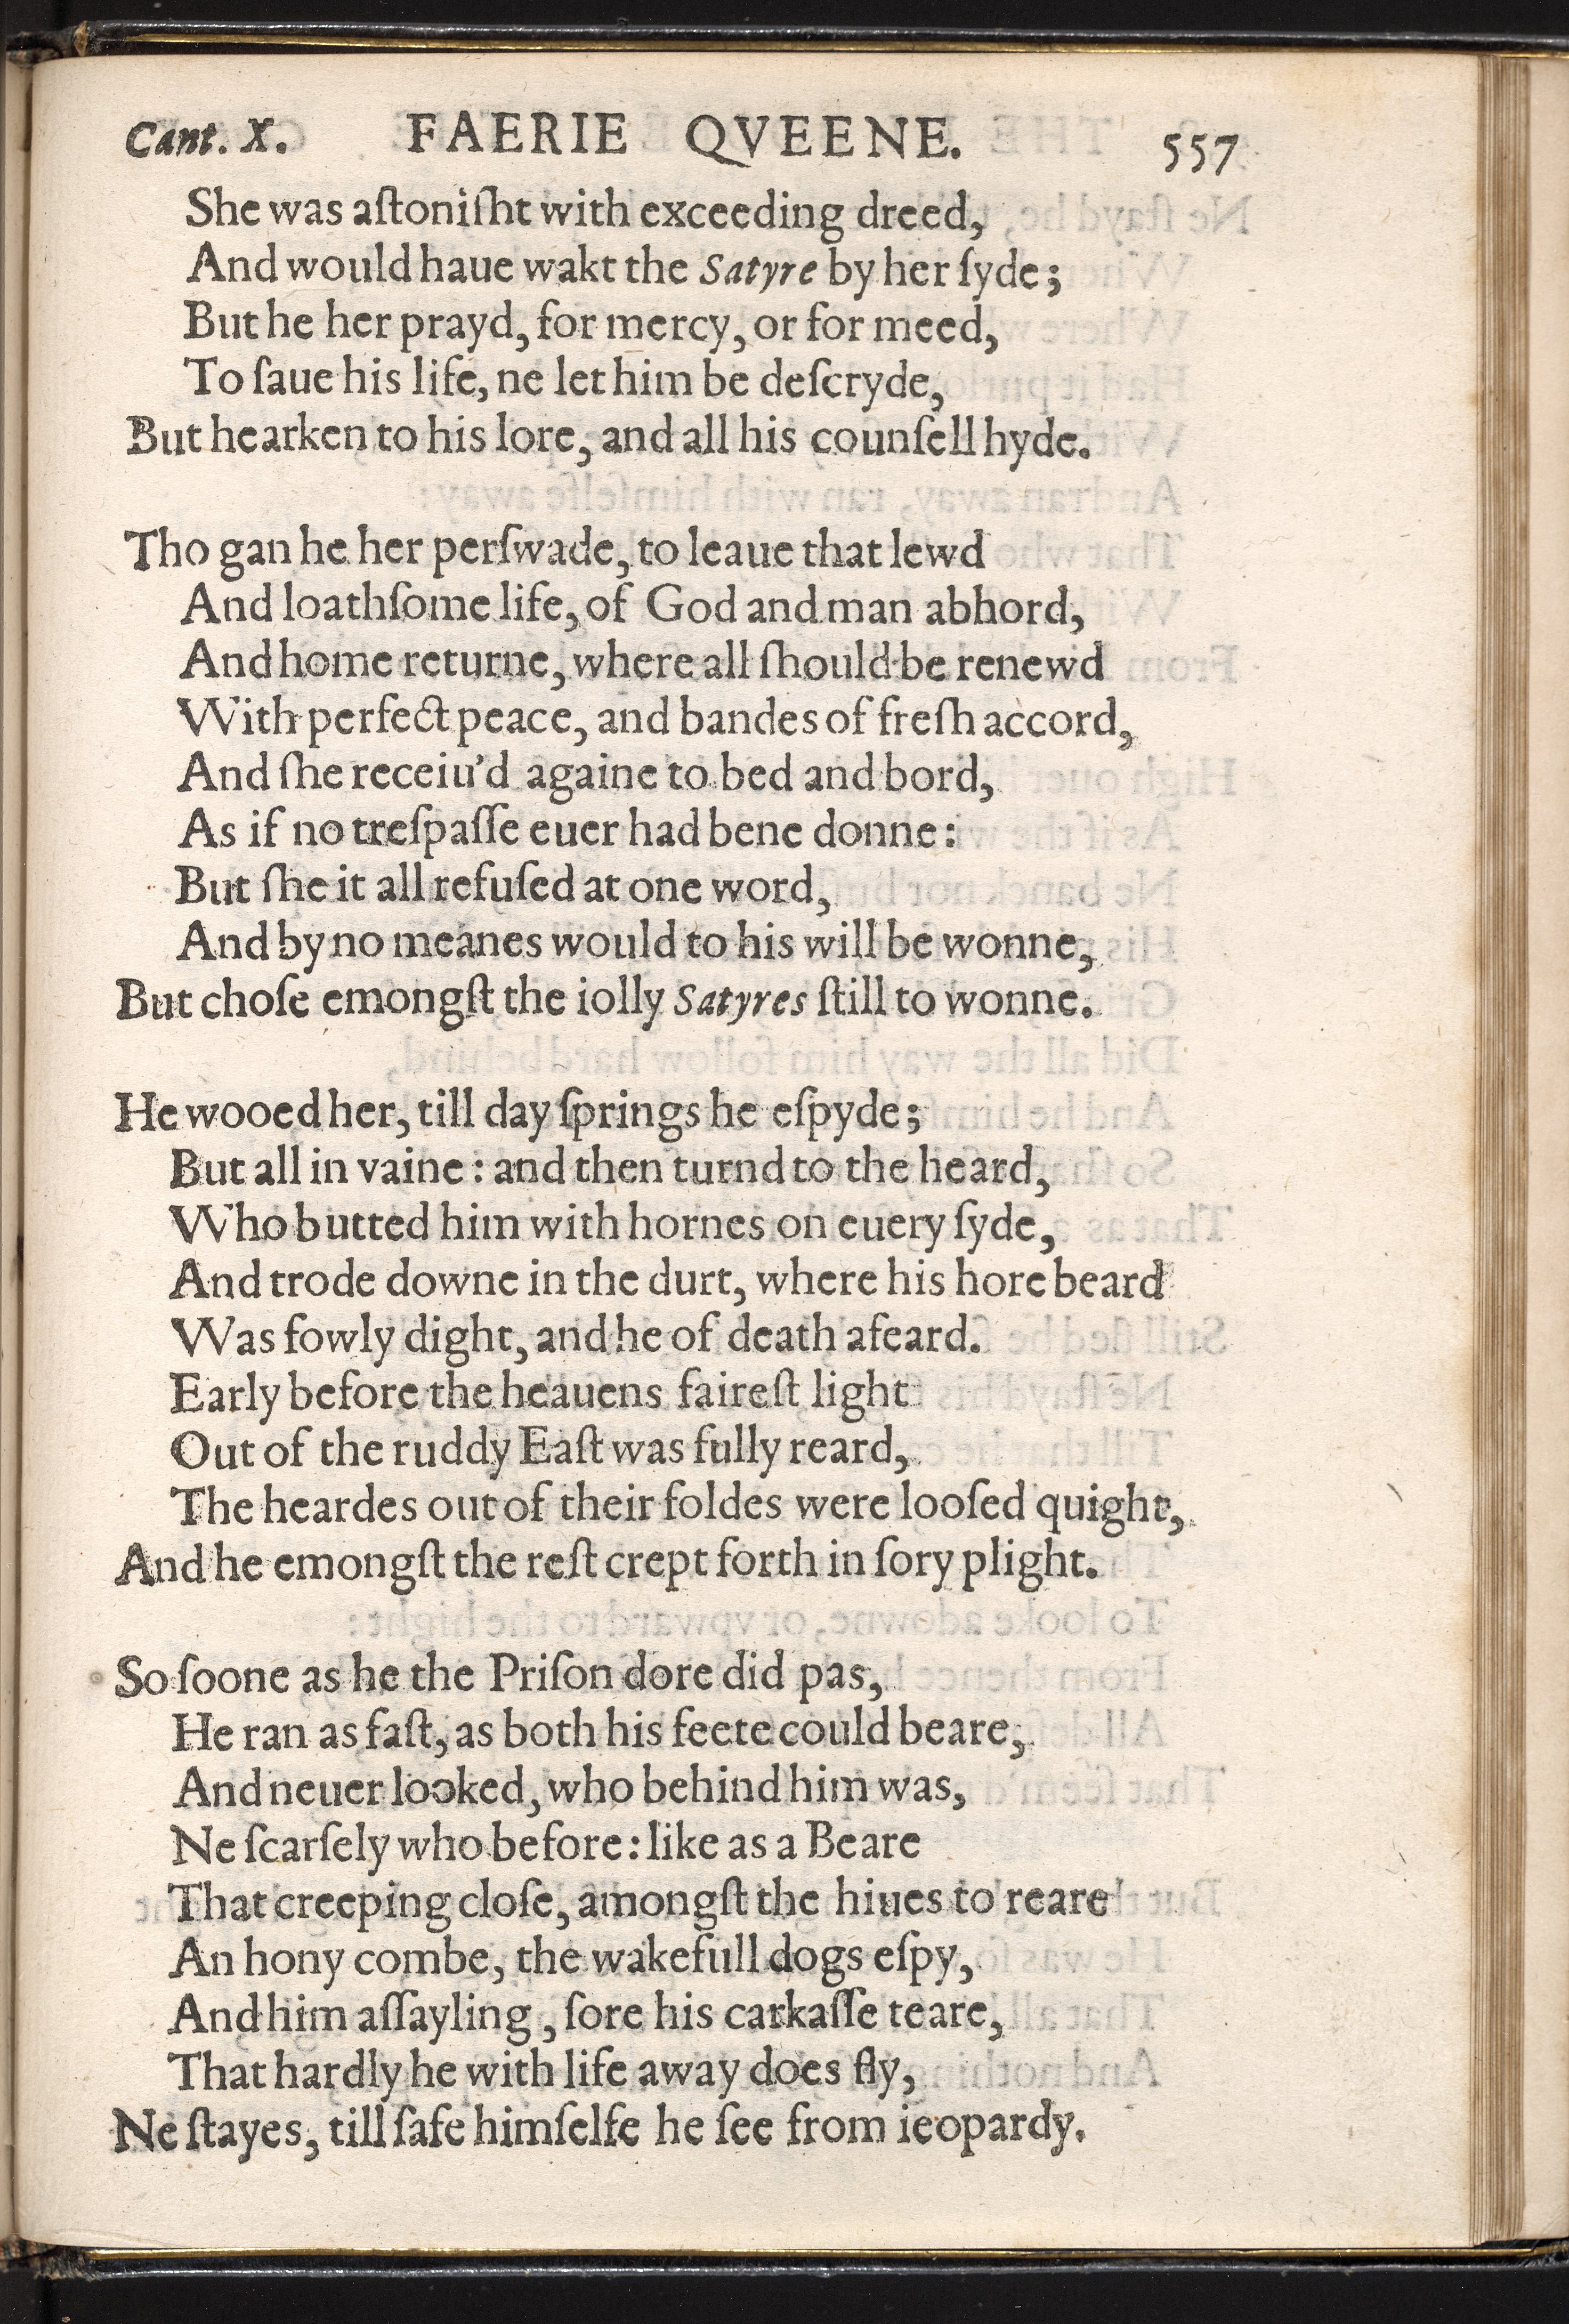 Cant. X. FAERIE QVEENE. 557
She was aſtoniſht with exceeding dreed,
And would haue wakt the Satyre by her ſyde;
But he her prayd, for mercy, or for meed,
To ſaue his life, ne let him be deſcryde,
But hearken to his lore, and all his counſell hyde.
Tho gan he her perſwade, to leaue that lewd
And loathſome life, of God and man abhord,
And home returne, where all ſhould be renewd
With perfect peace, and bandes of freſh accord,
And ſhe receiu'd againe to bed and bord,
As if no treſpaſſe euer had bene donne:
But ſhe it all refuſed at one word,
And by no meanes would to his will be wonne,
But choſe emongſt the iolly Satyres ſtill to wonne.
He wooed her, till day ſprings he eſpyde;
But all in vaine: and then turnd to the heard,
Who butted him with hornes on euery ſyde,
And trode downe in the durt, where his hore beard
Was fowly dight, and he of death afeard.
Early before the heauens faireſt light
Out of the ruddy Eaſt was fully reard,
The heardes out of their foldes were looſed quight,
And he emongſt the reſt crept forth in ſory plight.
So ſoone as he the Priſon dore did pas,
He ran as faſt, as both his feete could beare,
And neuer looked, who behind him was,
Ne ſcarſely who before: like as a Beare
That creeping cloſe, amongſt the hiues to reare
An hony combe, the wakefull dogs eſpy,
And him aſſayling, ſore his carkaſſe teare,
That hardly he with life away does fly,
Ne ſtayes, till ſafe himſelfe he ſee from ieopardy.